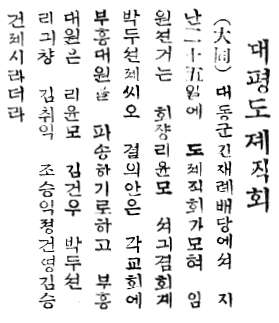 대평도졔직회
(大同) 대동군긴재례배당에셔 지
난二十五일에 도졔직회가모혀 임
원션거는 회쟝리윤모 셔긔겸회계
박두션졔씨오 결의안은 각교회에
부흥대원을 파송하기로하고 부흥
대원은 리윤모 김건우 박두션
리긔챵 김취익 조승익졍건영김승
건졔시라더라